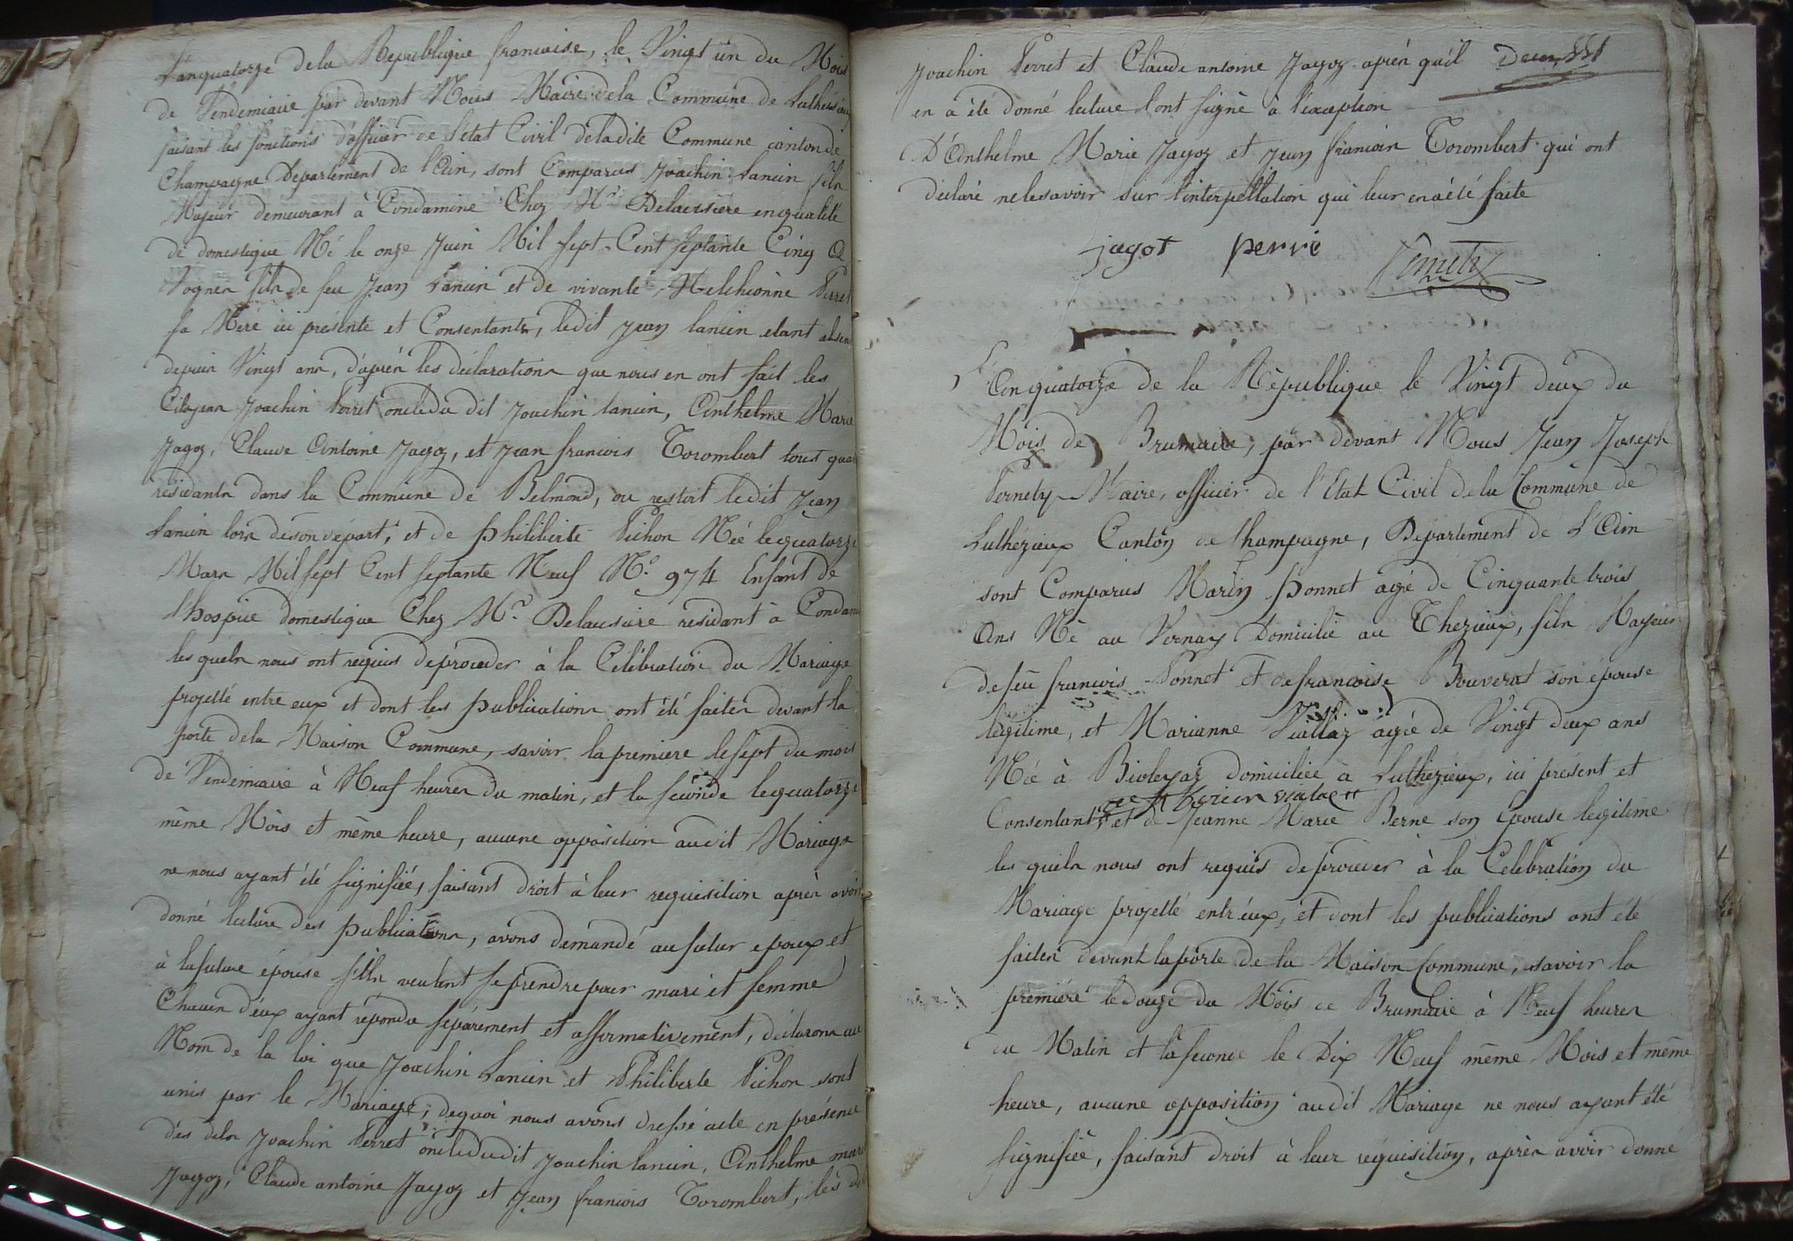 L'anquatorze dela Republique francaise, le Vingt un du Mois
de Vendemiaire par devant Nous Maire dela Commune de
faisant les fonctions d'officier de l'etat Civil deladite Commune canton de
Champagne Departement de l'Ain, sont Comparus Joachin Lancin fils
Majeur demeurant à Condamine Chez Mr. Delaissiere enqualité
de domestique Né le onze Juin Mil sept-Cent Septante Cinq a
Vognes fils de feu Jean Lancin et de vivante Melchionne Perret
sa Mere ici presente et Consentante, ledit Jean Lancin etant absent
depuis Vingt ans, d'après les déclarations que nous en ont fait les
Citoyens Joachin Perret oncledu dit Joachin Lancin, Anthelme Marie
Jagoz, Claude Antoine Jagoz, et Jean francois Torombert tous quatre
residants dans la Commune de Belmond, ou restoit ledit Jean
Lancin lors deson départ, et de Philiberte Pichon Née lequatorze
Mars Mil sept Cent septante Neuf No. 974 Enfant de
l'hospice domestique Chez Mr. Delaissiere residant à
les quels nous ont requis deproceder à la Celébration du Mariage
projetté entre eux et dont les publications ont été faites devant la
porte dela Maison Commune, savoir la premiere lesept du mois
de Vendemiaire à Neuf heures du matin, et la seconde lequatorze
même Mois et même heure, aucune opposition audit Mariage
ne nous ayant été signifiée, faisant droit à leur requisition après avoir
donné lecture des publications, avons demandé au futur epoux et
à lafuture épouse s'ils veulent seprendre pour mari et femme
Chacun d'eux ayant répondu séparement et affirmativement, déclarons au
Nom de la loi que Joachin Lancin et Philiberte Pichon sont
unis par le Mariage; dequoi nous avons dressé acte en présence
des dits Joachin Perret oncledudit Joachin Lancin, Anthelme marie
Jagoz, Claude antoine Jagoz et Jean francois Torombert, les
Joachin Perret et Claude antoine Jagoz après qu'il
en a été donné lecture l'ont signé à l'exception
D'Anthelme Marie Jagoz et Jean francois Torombert qui ont
déclaré nelesavoir sur l'interpellation qui leur enaété faite
jagot perré Pernety
L'an quatorze de la République le Vingt deux du
Mois de Brumaire, par devant Nous Jean Joseph
Pernety Maire, officier de l'Etat Civil dela Commune de
Luthezieux Canton de Champagne, Departement de L'Ain
sont Comparus Marin Ponnet agé de Cinquante trois
Ans Né au Vernay Domicilié au Thezieux, fils Majeur
defeu francois Ponnet et defrancoise Bouverat son épouse
légitime, et Marianne Viallaz agée de Vingt deux ans
Née à Bioleyaz domiciliée à Luthezieux, ici present et
Consentants, et de Jeanne Marie Berne son Epouse legitime
les quels nous ont requis deproceder à la Celebration du
Mariage projetté entr'eux, et dont les publications ont été
faites devant laporte de la Maison Commune, savoir la
premiere ledouze du Mois de Brumaire à Neuf heures
du Matin et laseconde le Dix Neuf même Mois et même
heure, aucune opposition audit Mariage ne nous ayant été
signifiée, faisant droit à leur réquisition, après avoir donné